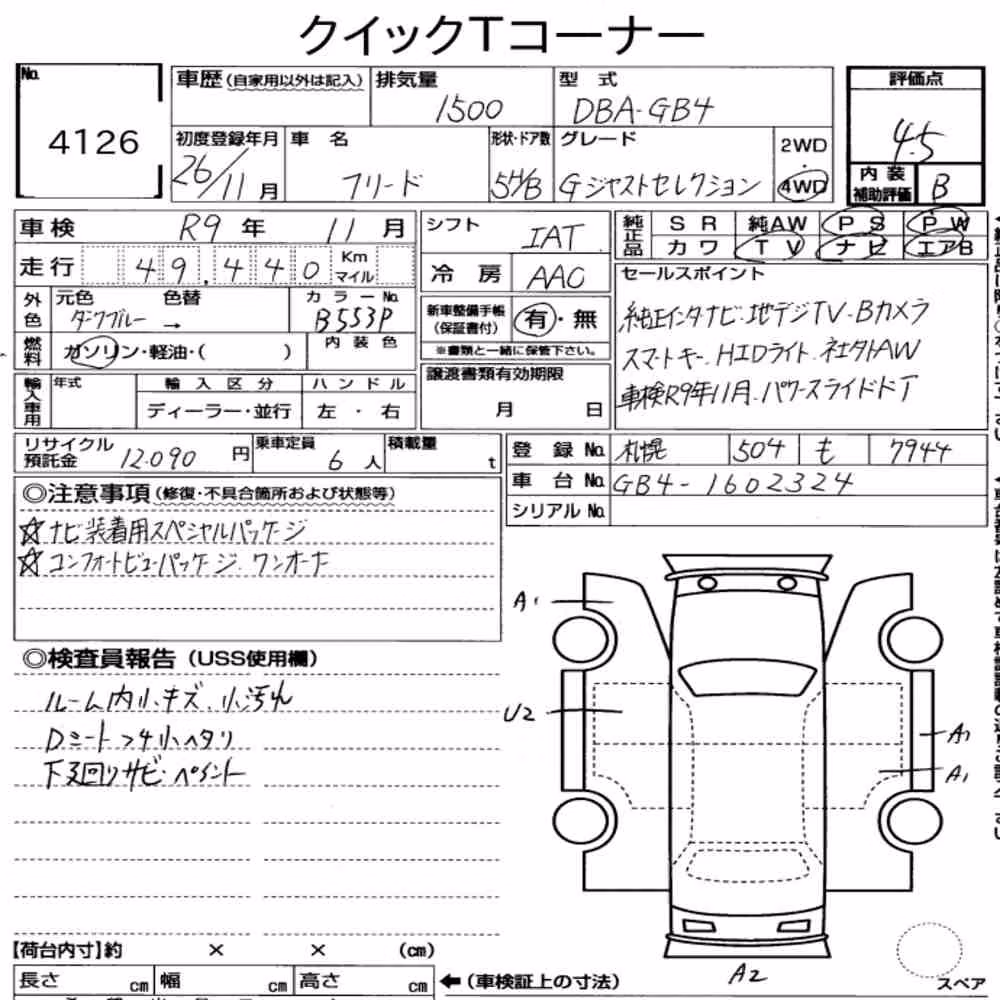 クイックTコーナー
No. 4126
車歴(自家用以外は記入) 排気量 1500 型式 DBA-GB4
評価点 4.5
初度登録年月 26/11月 車名 フリード 形状・ドア数 5H/B グレード Gジャストセレクション 2WD 4WD
内装補助評価 B
車検 R9年 11月
走行 49,440 Km マイル
シフト IAT
冷房 AAC
純正品 SR 純AW PS PW
カワ TV ナビ エアB
外色 元色 ダークブルー 色替 → カラーNo. B553P
燃料 ガソリン・軽油・( ) 内装色
新車整備手帳(保証書付) 有・無
※書類と一緒に保管下さい。
セールスポイント
純正インタナビ・地デジTV・Bカメラ
スマートキー、HIDライト、社外AW
車検R9年11月、パワースライドドア
輸入車用 年式 輸入区分 ハンドル
ディーラー・並行 左・右
譲渡書類有効期限
月 日
リサイクル預託金 12.090円 乗車定員 6人 積載量 t
登録No. 札幌 504 も 7944
車台No. GB4-1602324
シリアルNo.
◎注意事項(修復・不具合箇所および状態等)
☆ナビ装着用スペシャルパッケージ
☆コンフォートビューパッケージ、ワンオーナ
◎検査員報告(USS使用欄)
ルーム内小キズ、小汚れ
Dシート
下廻りサビ・ペイント
A1
U2
A1
A1
A2
【荷台内寸】約 × × (cm)
長さ cm 幅 cm 高さ cm
←(車検証上の寸法)
スペア